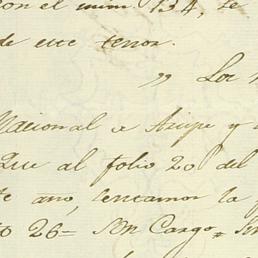 con el num 134, se
de este tenor.
" Los
Nacional de Arispe y
Que al folio 20 del
te año, sentamos la
to 26= Son Cargo =